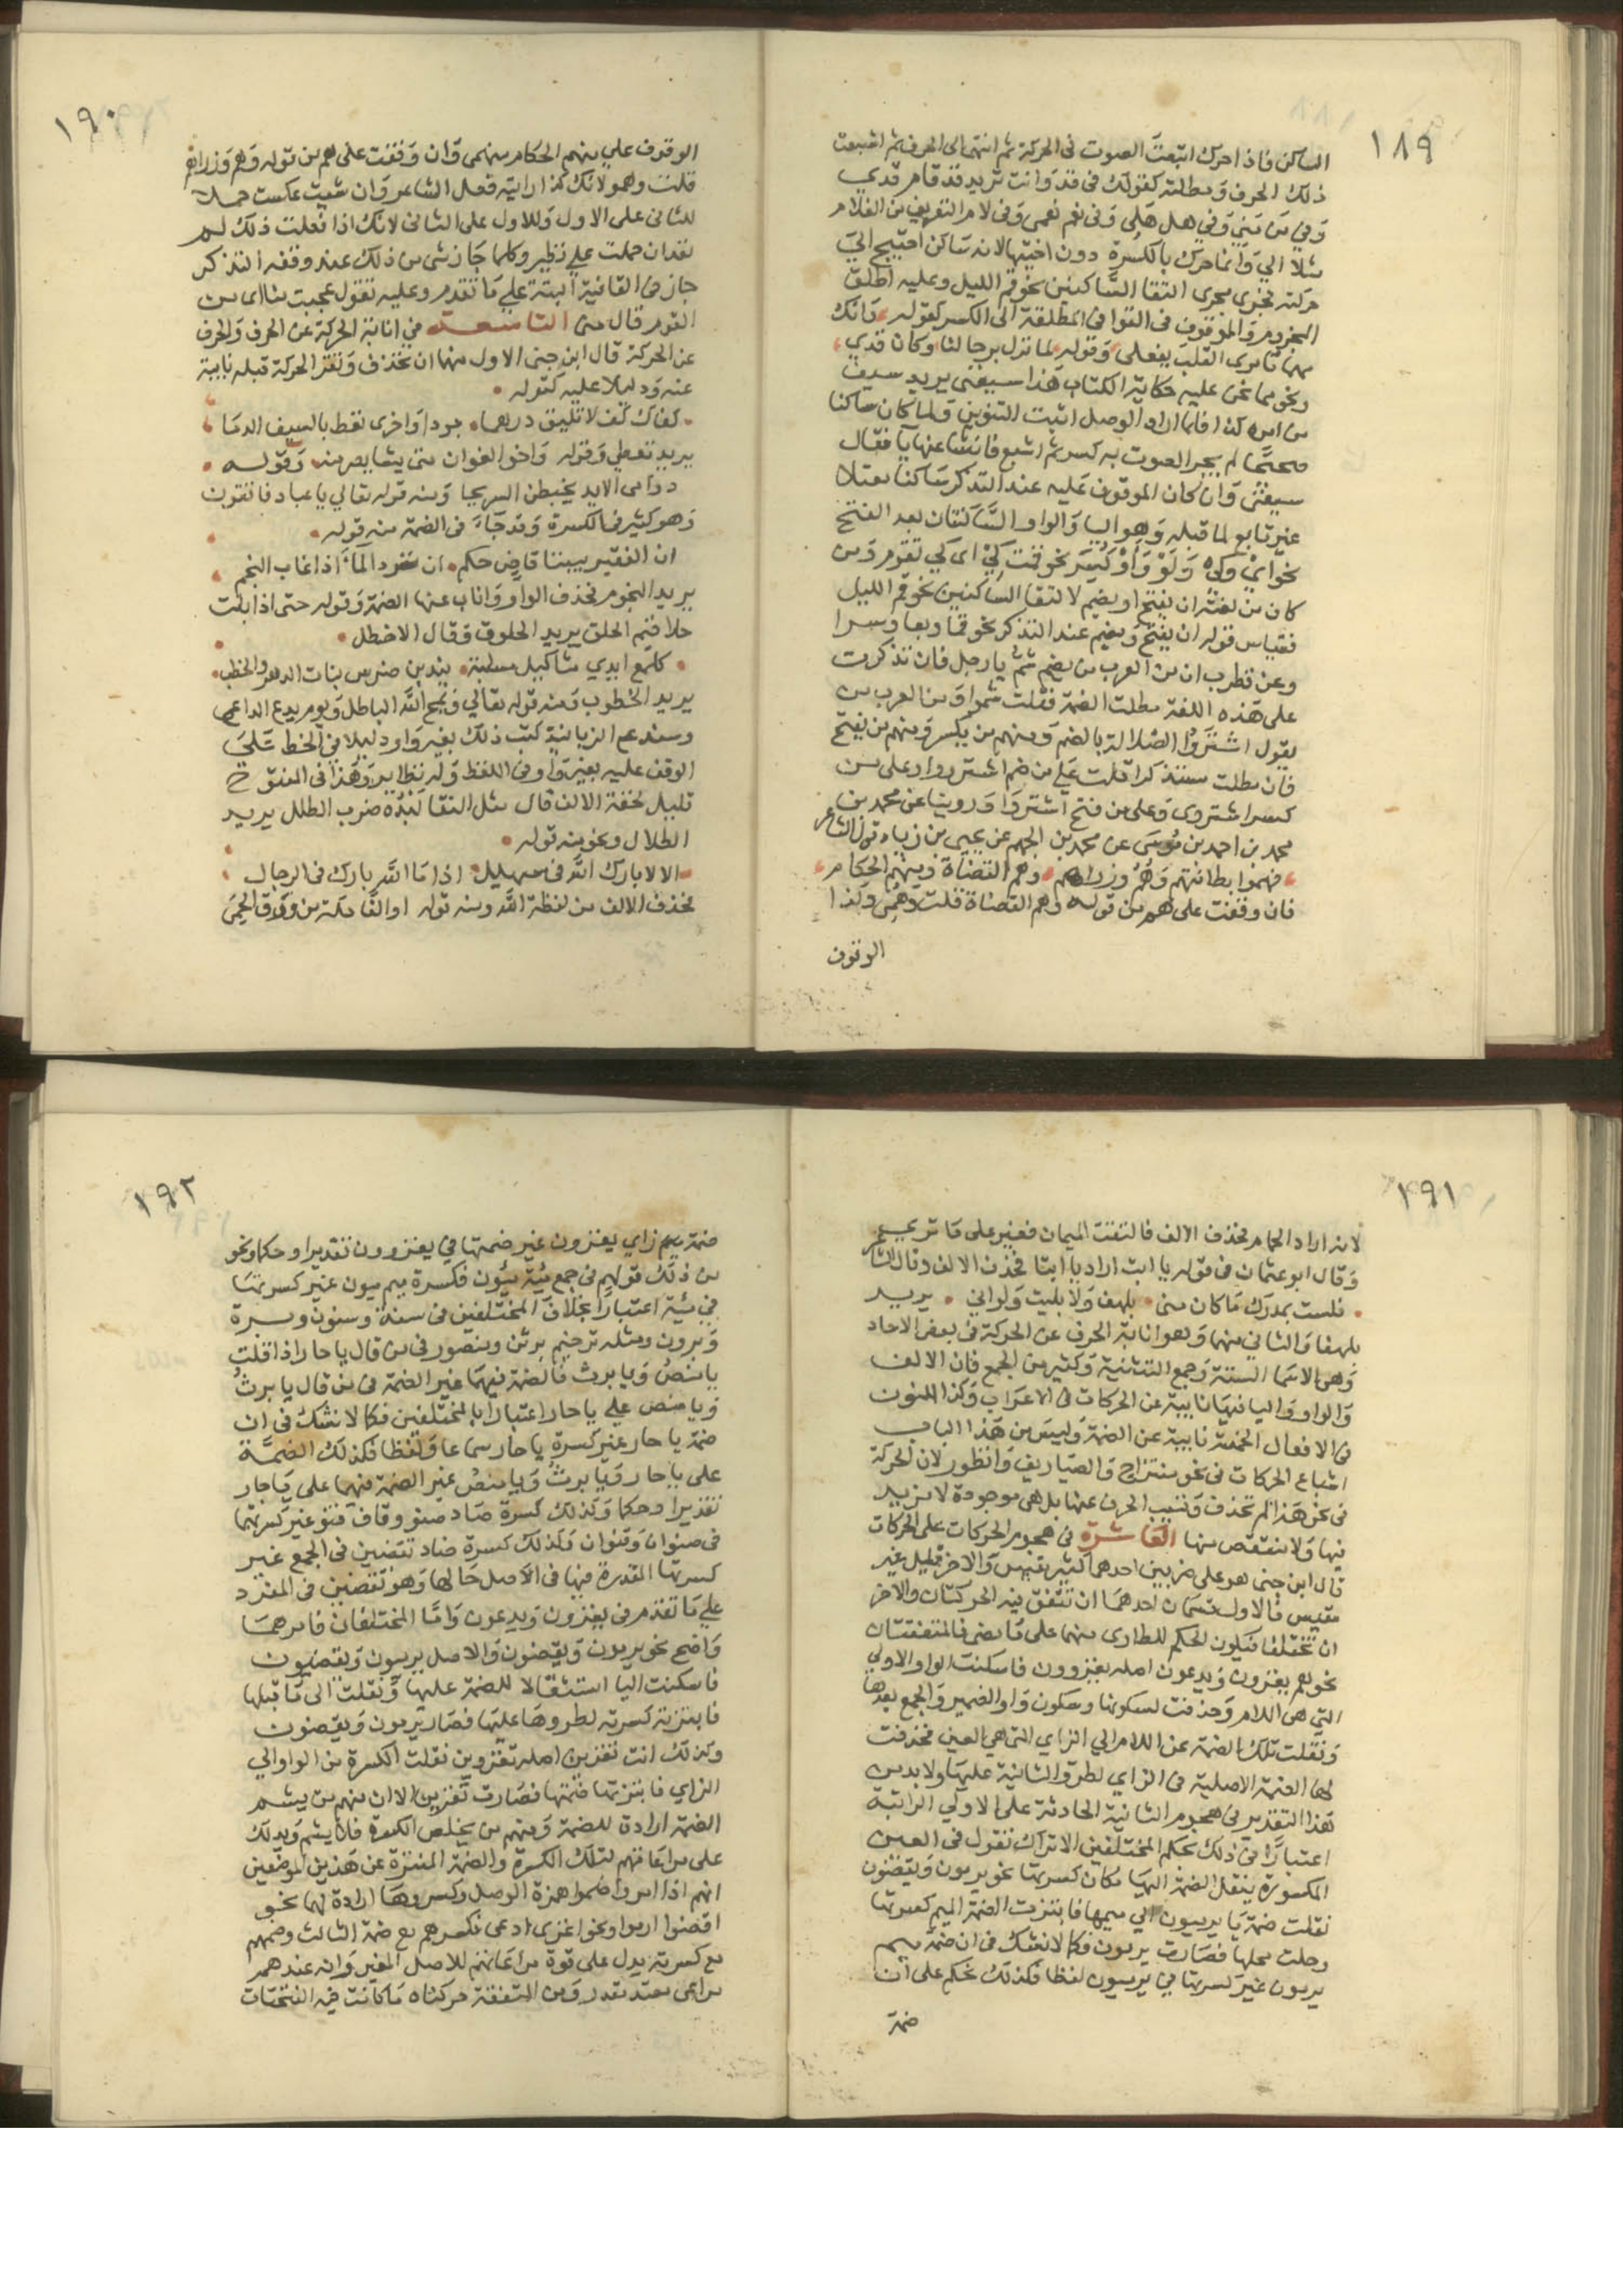 ١٨٩
الساكن فاذا حرك اتبعت الصوت في الحركة ثم انتهى الى الحرف ثم اشبعت
ذلك الحرف ومطلته كقولك في قد وانت تريد قد قام قدي
وفي من مني وفي هل هلي وفي نعم نعمي وفي لام التعريف من الغلام
مثلا الي وانما حرك بالكسرة دون اختيها لانه ساكن احتيج الى
حركته فجرى مجرى التقا الساكنين نحو قم الليل وعليه اطلق
المجزوم والموقوف في القوافي المطلقة الى الكسر كقوله وانك
مهما تامري القلب يفعلي وقوله لما تزل برحالنا وكان قدي
ونحو مما نحن عليه حكاية الكتاب هذا سيفني يريد سيف
من امره كذا فلما اراد الوصل اثبت التنوين ولما كان ساكنا
صحيحا لم يجر الصوت به كسر ثم اشبع فانشا عنها يا فقال
سيفني وان كان الموقوف عليه عند التذكر ساكنا معتلا
غير تابع لما قبله وهو اليا والواو الساكنتان بعد الفتح
نحو اي وكي ولو واو كسر نحو قمت كي اي كي تقوم ومن
كان من لغته ان يفتح او يضم لالتقا الساكنين نحو قم الليل
فقياس قوله ان يفتح ويضم عند التذكر نحو قما وبعا وسرا
وعن قطرب ان من العرب من يضم شم يا رجل فان تذكرت
على هذه اللغة مطلت الضمة فقلت شموا ومن العرب من
يقول اشتروا الضلالة بالضم ومنهم من يكسر ومنهم من يفتح
فان مطلت متذكرا قلت على من ضم اشتروو وعلى من
كسر اشتروي وعلى من فتح اشتروا وروينا عن محمد بن
محمد بن احمد بن موسى عن محمد بن الجهم عن يحيى بن زياد قول الشاعر
فهموا بطانتهم وهم وزراهم وهم القضاة ومنهم الحكام
فان وقفت على هم من قوله وهم القضاة قلت وهمي وكذا
الوقوف
١٩٠
الوقوف على منهم الحكام منهمي وان وقفت على هم من قوله وهم وزراهم
قلت وهمو لانك كذا رايته فعل الشاعر وان شيت عكست حملا
للثاني على الاول وللاول على الثاني لانك اذا فعلت ذلك لم
تعد ان حملت على نظير وكلما جاز شي من ذلك عند وقفة التذكر
جاز في القافية البتة على ما تقدم وعليه تقول عجبت منا اي من
القوم قال منى التاسعة في انابة الحركة عن الحرف والحرف
عن الحركة قال ابن جني الاول منهما ان تحذف وتقر الحركة قبله نايبة
عنه ودليلا عليه كقوله
كفاك كف لا تليق درهما جودا واخرى تعط بالسيف الدما
يريد تعطي وقوله واخو الغوان متى يشا يصرمنه وقوله
دوامي الايد يخبطن السريحا ومنه قوله تعالي يا عباد فاتقون
وهو كثير في الكسرة وقد جآء في الضمة منه قوله
ان الفقير بيننا قاض حكم ان ترد المآء اذا غاب النجم
يريد النجوم فحذف الواو واناب عنها الضمة وقوله حتى اذا ابلت
حلاقيم الحلق يريد الحلوق وقال الاخطل
كلمع ايدي مثاكيل مسلبة يندبن ضرس بنات الدهر والخطب
يريد الخطوب ومنه قوله تعالي ويمح الله الباطل ويوم يدع الداعي
وسندع الزبانية كتب ذلك بغير واو دليلا في الخط على
الوقف عليه بغير واو في اللفظ وله نظاير وهذا في المفتوح
قليل لخفة الالف قال مثل النقا لبده ضرب الطلل يريد
الطلال ونحو منه قوله
الا لا بارك الله في سهيل اذا ما الله بارك في الرجال
فحذف الالف من لفظة الله ومنه قوله اوالفا مكة من ورق الحمى
١٩١
لانه اراد الحمام فحذف الالف فالتقت الميمان فغير على ما ترى
وقال ابو عثمان في قوله يا ابت اراد يا ابتا فحذف الالف وقال الشاعر
فلست بمدرك ما كان مني بلهف ولا بليت ولواني يريد
بلهفا والثاني منهما وهو انابة الحرف عن الحركة في بعض الاحاد
وهي الاسما الستة وجمع التثنية وكثير من الجمع فان الالف
والواو واليا فيها نايبة عن الحركات في الاعراب وكذا النون
في الافعال الخمسة نايبة عن الضمة وليس من هذا الباب
اشباع الحركات في نحو منتزاح والصياريف وانظور لان الحركة
في نحو هذا لم تحذف وتنيب الحرف عنها بل هي موجودة لا مزيد
فيها ولا منتقص منها العاشرة في هجوم الحركات على الحركات
قال ابن جني هو على ضربين احدهما كثير مقيس والاخر قليل غير
مقيس فالاول قسمان احدهما ان تتفق فيه الحركتان والاخر
ان تختلفا فيكون الحكم للطاري منهما على ما مضى فالمتفقتان
نحو هم يغزون ويدعون اصله يغزوون فاسكنت الواو الاولى
التي هي اللام وحذفت لسكونها وسكون واو الضمير والجمع بعدها
ونقلت تلك الضمة عن اللام الي الزاي التي هي العين فحذفت
لها الضمة الاصلية في الزاي لطرو الثانية عليها ولا بد من
هذا التقدير في هجوم الثانية الحادثة على الاولي الراتبة
اعتبارا في ذلك بحكم المختلفين الا تراك تقول في العين
المكسورة بنقل الضمة اليها مكان كسرتها نحو يرمون ويقضون
نقلت ضمة يا يرميون الي ميمها فابتزت الضمة الميم كسرتها
وحلت محلها فصارت يرمون فكما لا نشك في ان ضمة ميم
يرمون غير كسرتها في يرميون لفظا فكذلك نحكم على ان
ضمة
١٩٢
ضمة زاي يغزون غير ضمتها في يغزوون تقديرا وحكما ونحو
من ذلك قولهم في جمع مئة مئون فكسرة ميم ميون غير كسرتها
في مئة اعتبارا بخلاف المختلفين في سنة وسنون وبرة
وبرون ومثله ترخيم برثن ومنصور في من قال يا حار اذا قلت
يا منص ويا برث فالضمة فيهما غير الضمة في من قال يا برث
ويا منص على يا حار اعتبارا بالمختلفين فكما لا نشك في ان
ضمة يا حار غير كسرة يا حار سماعا ولفظا فكذلك الضمة
على يا حار ويا برث ويا منص غير الضمة فيهما على يا حار
تقديرا وحكما وكذلك كسرة صاد صنو وقاف قنو غير كسرتها
في صنوان وقنوان وكذلك كسرة ضاد تقضين في الجمع غير
كسرتها المقدرة فيها في الاصل حالها وهو تقضين في المفرد
على ما تقدم في يغزون ويدعون واما المختلفان فامرهما
واضح نحو يرمون ويقضون والاصل يرميون ويقضيون
فاسكنت اليا استثقالا للضمة عليها ونقلت الى ما قبلها
فابتزته كسرته لطروها عليها فصار يرمون ويقضون
وكذلك انت تغزين اصله تغزوين نقلت الكسرة من الواو الي
الزاي فابتزتها ضمتها فصارت تغزين الا ان منهم من يشم
الضمة ارادة للضمة ومنهم من يخلص الكسرة فلا يشم ويدلك
على مراعاتهم لتلك الكسرة والضمة المبتزة عن هذين الموضعين
انهم اذا امروا ضموا همزة الوصل وكسروها ارادة لهما نحو
اقضوا ارموا ونحو اغزي ادعي فكسرهم مع ضمة الثالث وضمهم
مع كسرته يدل على قوة مراعاتهم للاصل المغير وانه عندهم
مراعى معتد مقدر ومن المتفقة حركتاه ما كانت فيه الفتحتان